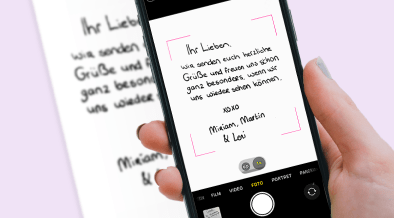 Ihr Lieben,
wir senden euch herzliche
Grüße und freuen uns schon
ganz besonders, wenn wir
uns wieder sehen können.
xoxo
Miriam, Martin
& Levi
Ihr Lieben
wir senden
Grüße und f
ganz beson
uns wieder
Miriam,
&
FILM
VIDEO
FOTO
PORTRÄT